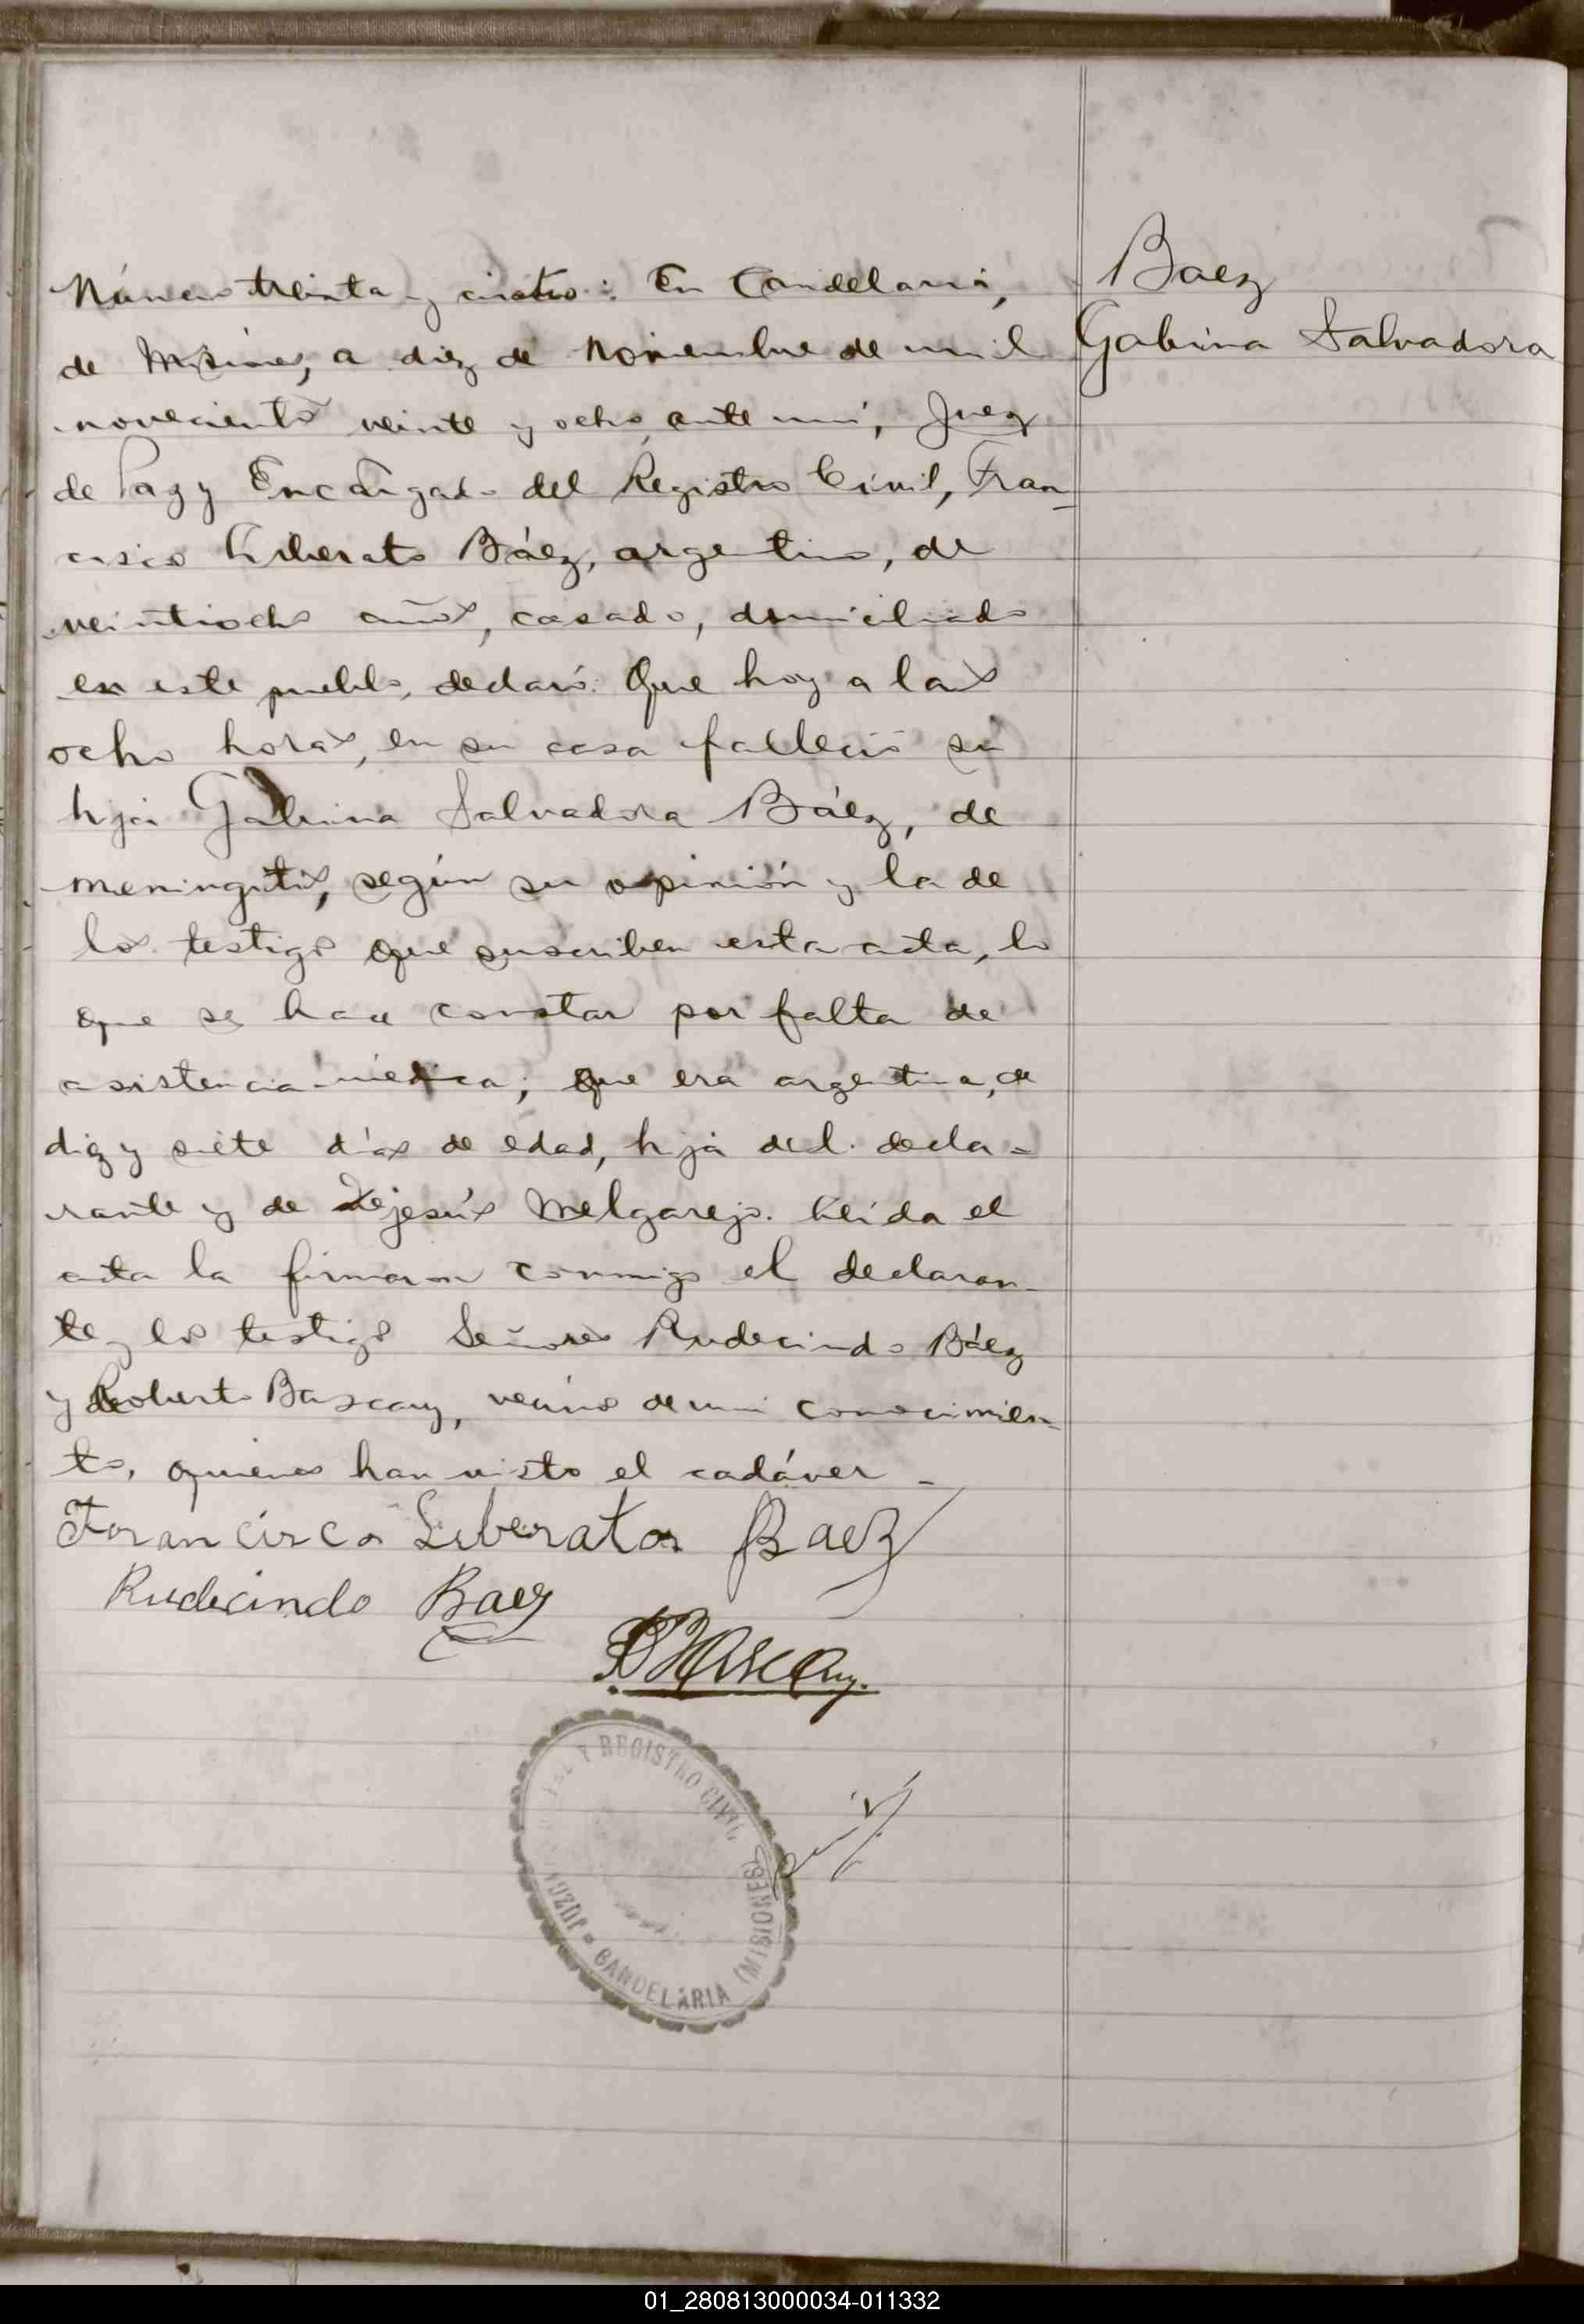 Número treinta y cuatro: En Candelaria,
de Misiones, a diez de Noviembre de mil
novecientos veinte y ocho, ante mí, Juez
de Paz y Encargado del Registro Civil, Fran-
cisco Liberato Báez, argentino, de
veintiocho años, casado, domiciliado
en este pueblo, declaró: Que hoy a las
ocho horas, en su casa falleció su
hija Gabina Salvadora Báez, de
meningitis, según su opinión y la de
los testigos que suscriben esta acta, lo
que se hace constar por falta de
asistencia médica; que era argentina, de
diez y siete días de edad, hija del decla-
rante y de Dejesús Melgarejo. Leída el
acta la firmaron conmigo el declaran-
te y los testigos Señores Rudecindo Báez
y Roberto Bascary, vecinos de mi conocimien-
to, quienes han visto el cadáver -
Francisco Liberato Baez
Rudecindo Baez
R Bascary.
Baez
Gabina Salvadora
Y REGISTRO CIVIL
CANDELARIA (MISIONES)
01_280813000034-011332